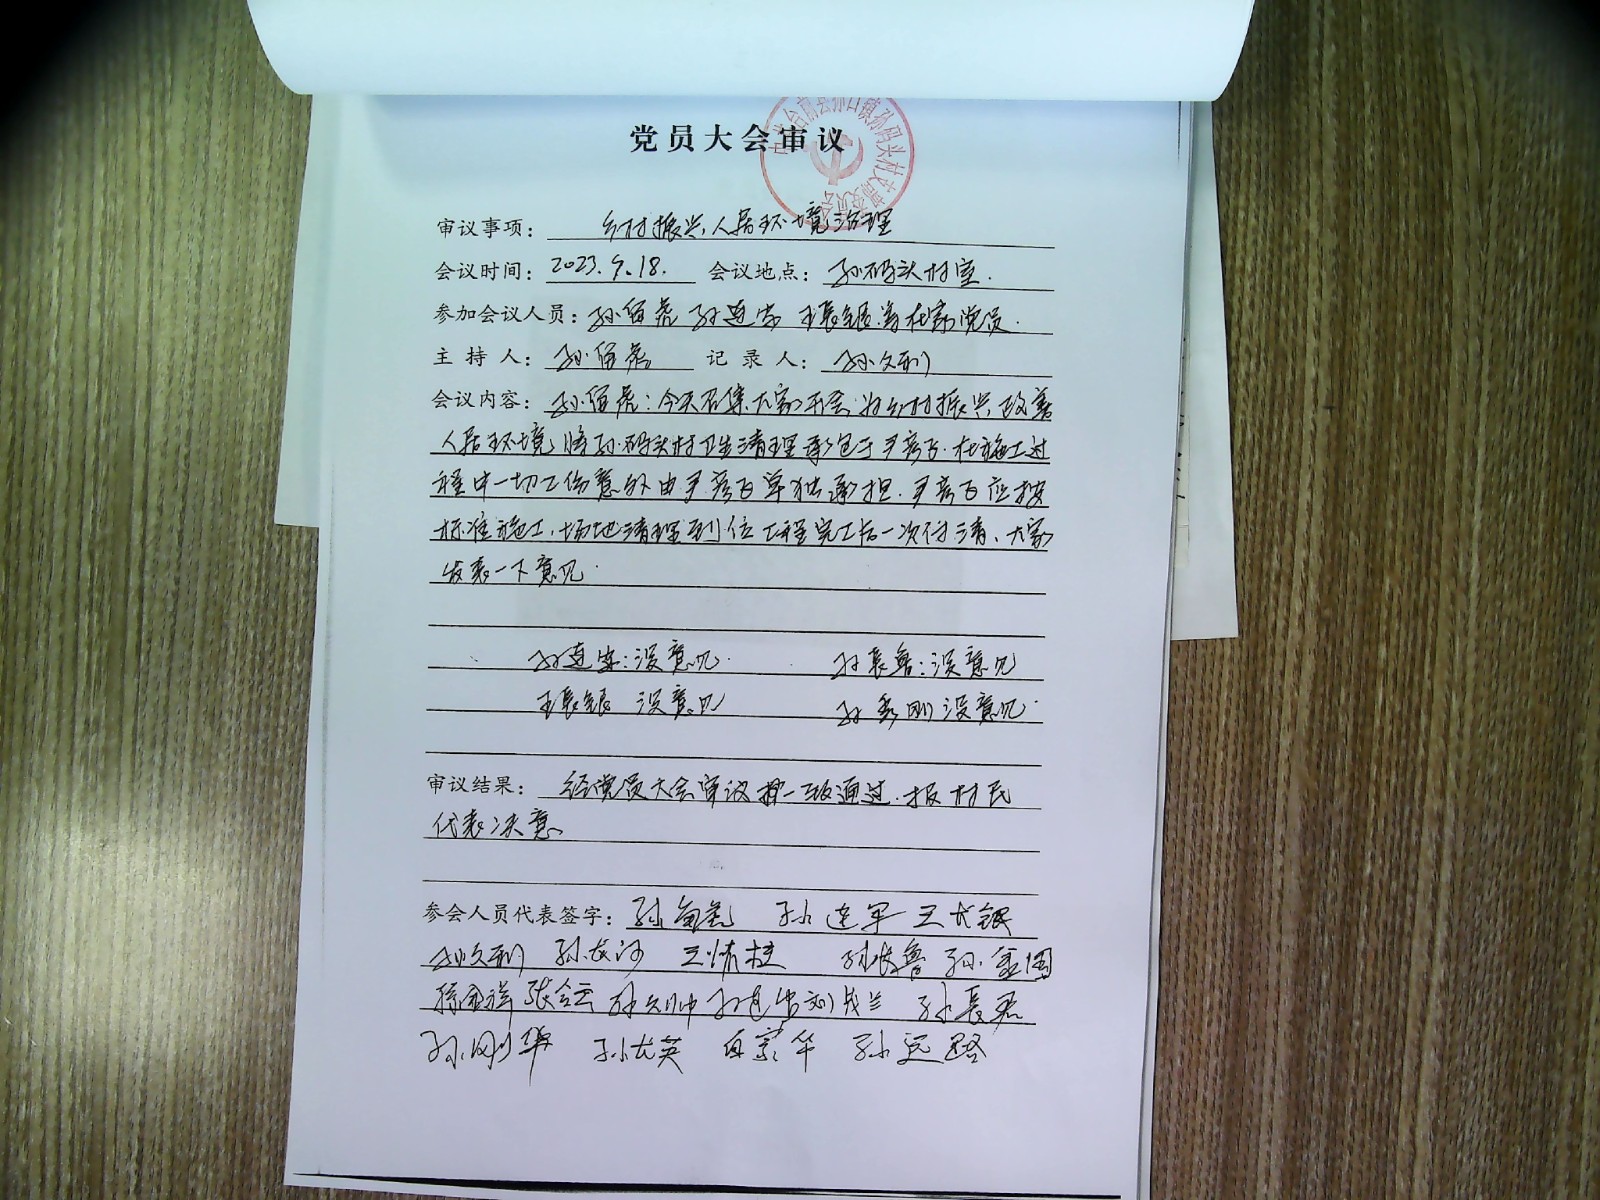 党员大会审议
审议事项: 乡村振兴,人居环境治理
会议时间: 2023.9.18. 会议地点: 孙码头村室.
参加会议人员: 孙保虎 孙连安 王长银等在家党员.
主持人: 孙保虎 记录人: 孙文利
会议内容: 孙保虎:今天召集大家开会为乡村振兴改善
人居环境,将孙码头村卫生清理承包于尹彦飞.在施工过
程中一切工伤意外由尹彦飞单独承担.尹彦飞应按
标准施工,场地清理到位工程完工后一次付清、大家
发表一下意见.
孙连安:没意见. 孙长鲁:没意见
王长银 没意见 孙 刚没意见.
审议结果: 经党员大会审议 一致通过.报村民
代表决意
参会人员代表签字: 孙 孙连军 王长银
孙文利 孙 王 桂 孙长鲁 孙
张合云 孙 刘 兰 孙长
孙刚华 孙龙英 华 孙远路